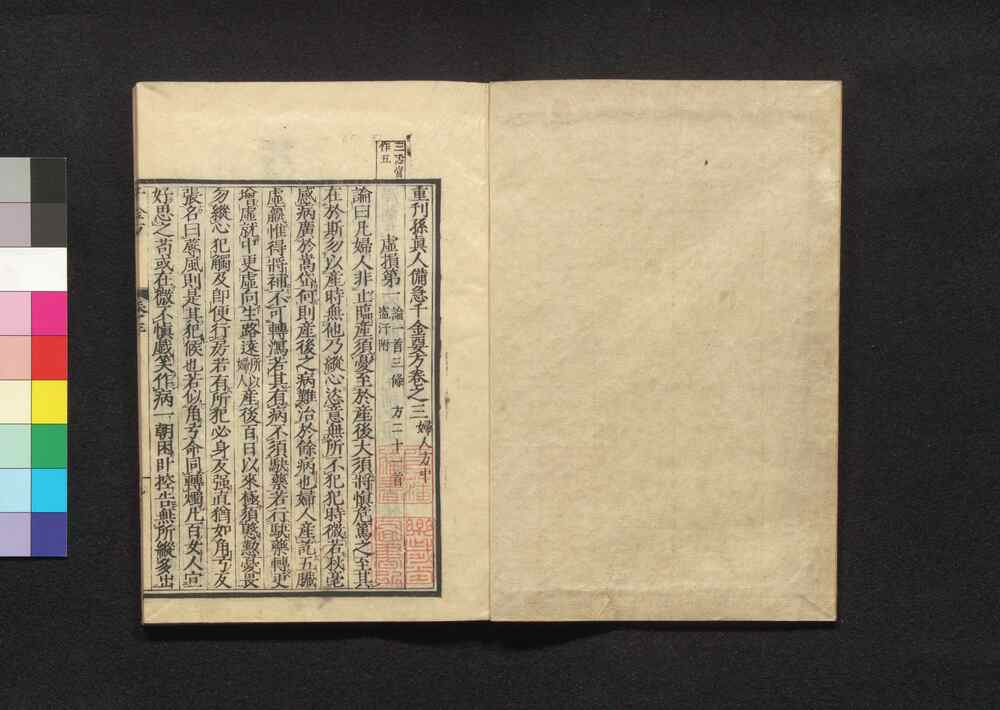 重刊孫真人備急千金要方卷之三 婦人方中
虛損第一 論一首三條 方二十 首
盪汗附
論曰凡婦人非止臨產須憂至於產後大須將慎危篤之至其
在於斯勿以產時無他乃縱心恣意無所不犯犯時微若秋毫
感病廣於嵩岱何則產後之病難治於餘病也婦人產訖五臟
虛羸惟得將補不可轉瀉若其有病不須駃藥若行駃藥轉更
增虛就中更虛向生路遠所以婦人產後百日以來極須慇懃憂畏
勿縱心犯觸及即便行房若有所犯必身反强直猶如角弓反
張名曰蓐風則是其犯候也若似角弓命同轉燭凡百女人宜
好思之苟或在微不慎戲笑作病一朝困卧控告無所縱多出